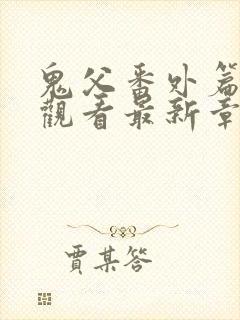 鬼父番外篇
觀看最新章
賈某答